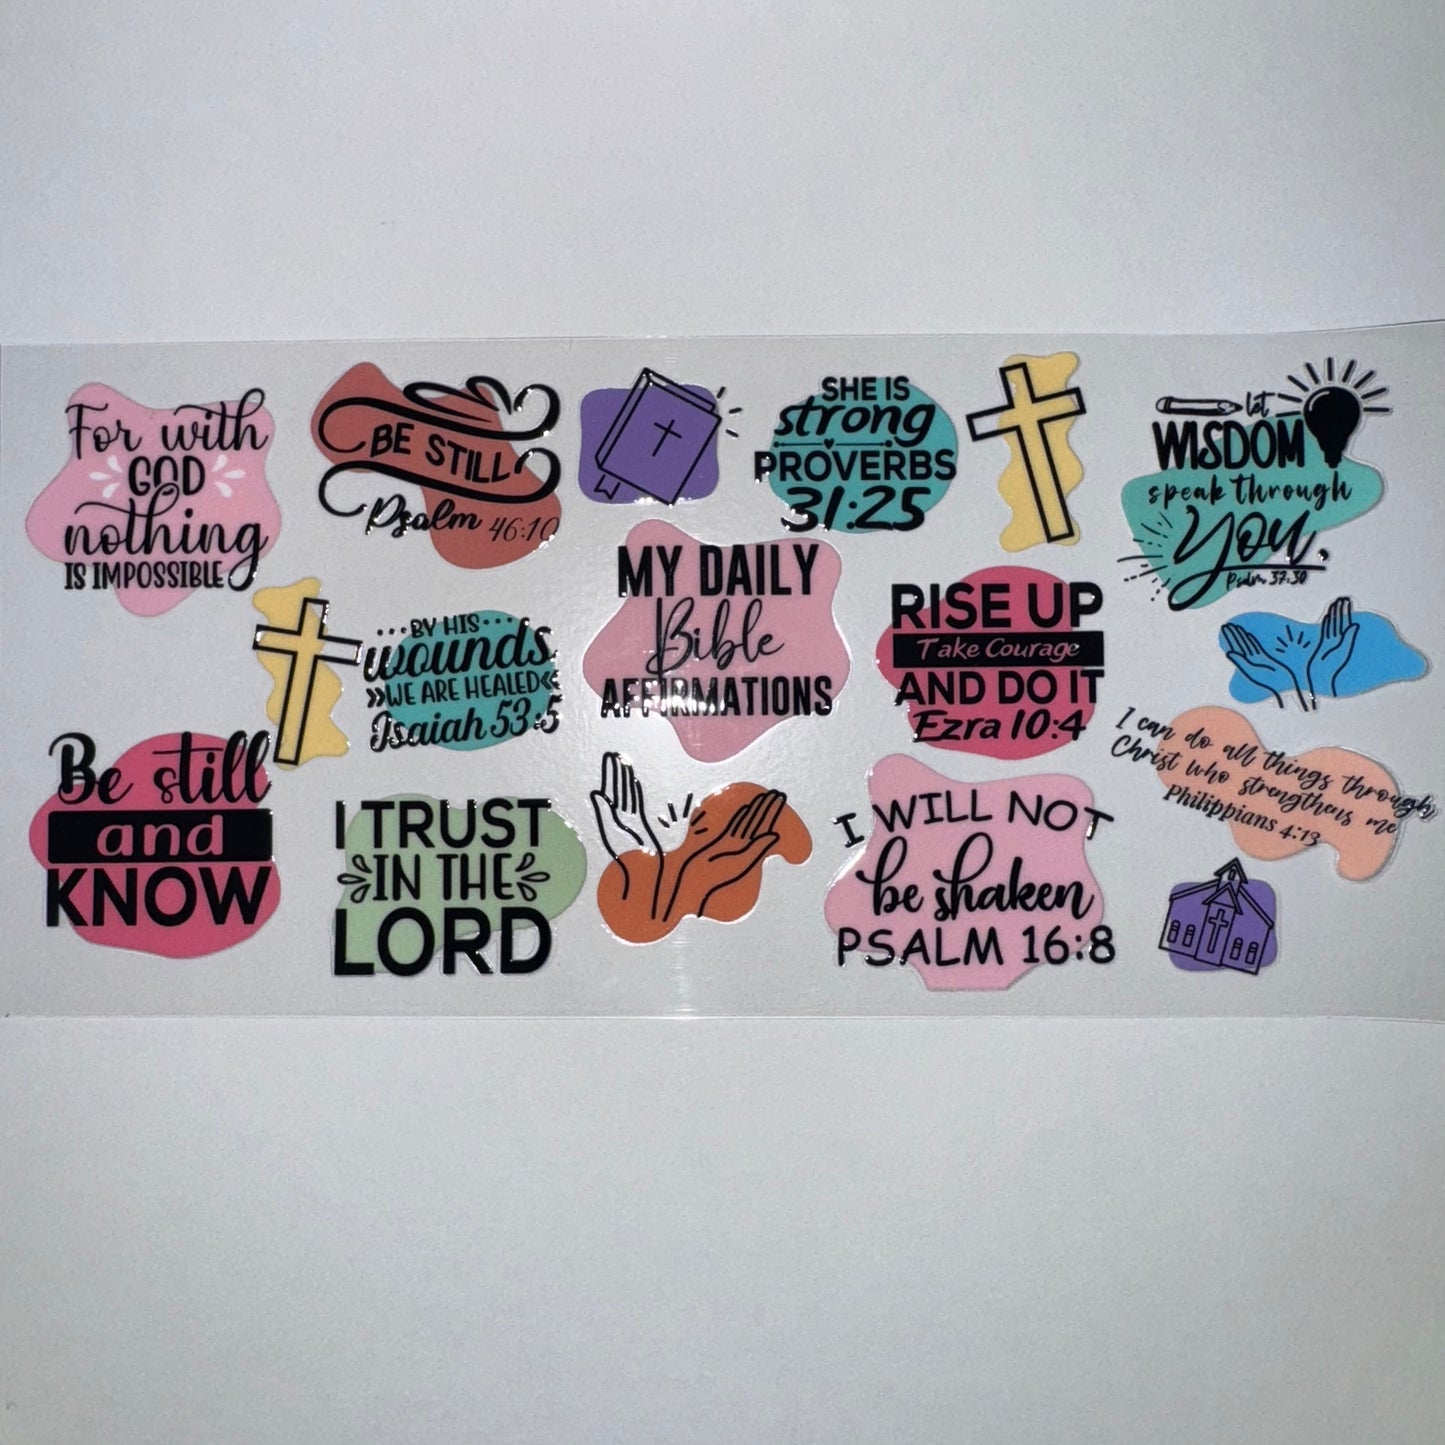 For with
GOD
nothing
IS IMPOSSIBLE
BE STILL
Psalm 46:10
SHE IS
strong
PROVERBS
31:25
let
WISDOM
speak through
You.
Psalm 37:30
BY HIS
wounds
WE ARE HEALED
Isaiah 53:5
MY DAILY
Bible
AFFIRMATIONS
RISE UP
Take Courage
AND DO IT
Ezra 10:4
Be still
and
KNOW
I TRUST
IN THE
LORD
I WILL NOT
be shaken
PSALM 16:8
I can do all things through
Christ who strengthens me
Philippians 4:13